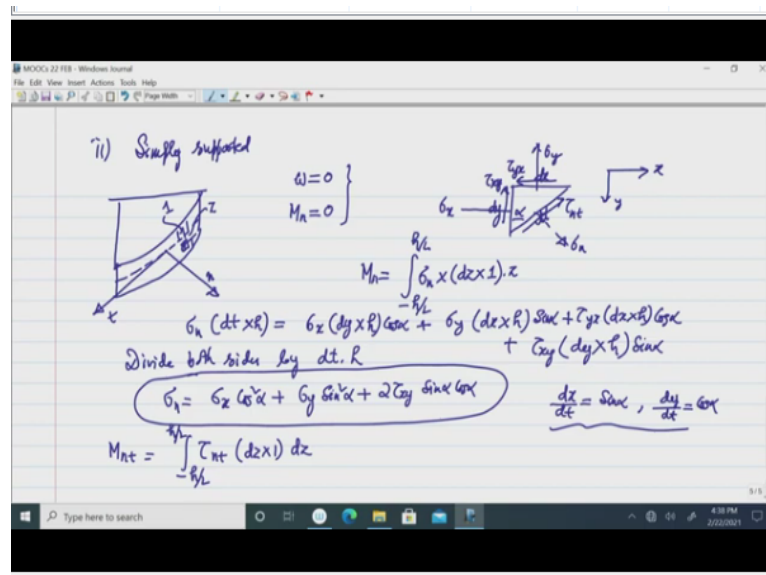 MOOCs 22 FEB - Windows Journal
File Edit View Insert Actions Tools Help
Page Width
ii) Simply supported
ω=0 }
Mn=0
1
z
n
t
τyx σy
dx
τxy
σx dy α dt τnt
σn
x
y
Mn= ∫ σn x (dz x 1). z
h/2
-h/2
σn (dt x h) = σx (dy x h) Cosα + σy (dx x h) Sinα + τyx (dx x h) Cosα
+ τxy (dy x h) Sinα
Divide both sides by dt. h
σn = σx Cos²α + σy Sin²α + 2τxy Sinα Cosα
dx/dt = Sinα , dy/dt = Cosα
Mnt = ∫ τnt (dz x 1) dz
h/2
-h/2
5/5
Type here to search
4:38 PM
2/22/2021